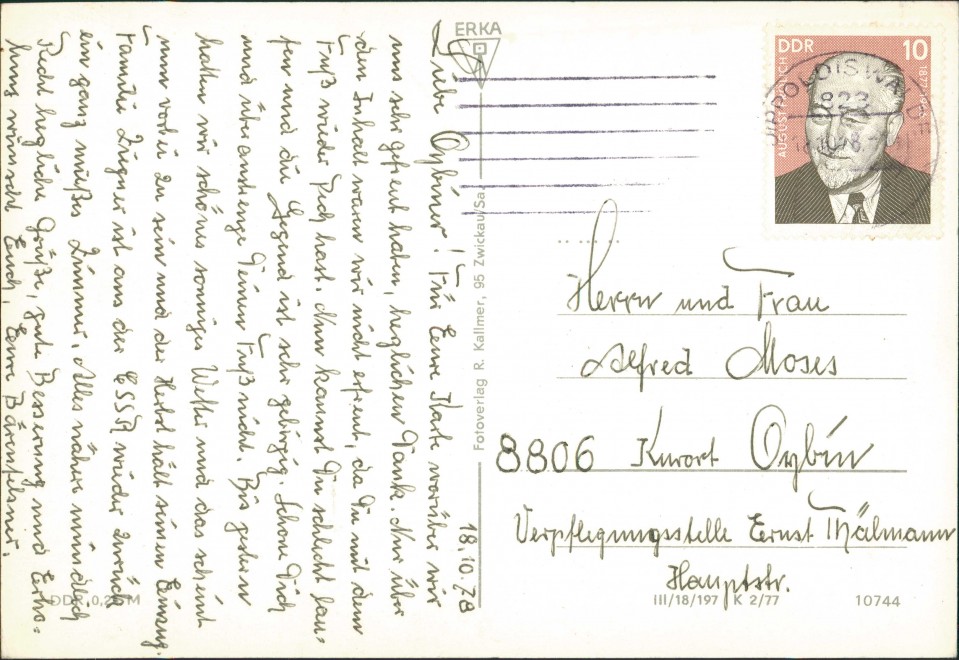 18.10.78
Liebe Oybiner! Für Eure Karte worüber wir
uns sehr gefreut haben, herzlichen Dank. Nur über
den Inhalt waren wir nicht erfreut, da Du mit dem
Fuß wieder Pech hast. Nun kannst Du schlecht lau-
fen und die Gegend ist sehr gebirgig. Schone Dich
und überanstrenge Deinen Fuß nicht. Bis gestern
hatten wir schönes sonniges Wetter und das scheint
nun vorbei zu sein und der Herbst hält seinen Einzug.
Familie Zugner ist aus der ČSSR wieder zurück
ein ganz mußes Zimmer. Alles nähere mündlich
Recht herzliche Grüße, gute Besserung und Erho-
lung wünscht Euch, Eure Bärenfelser.
ERKA
Fotoverlag R. Kallmer, 95 Zwickau/Sa.
DDR 10
AUGUST FRÖLICH
823
Herrn und Frau
Alfred Moses
8806 Kurort Oybin
Verpflegungsstelle Ernst Thälmann
Hauptstr.
DDR 0,20 M
III/18/197 K 2/77 10744